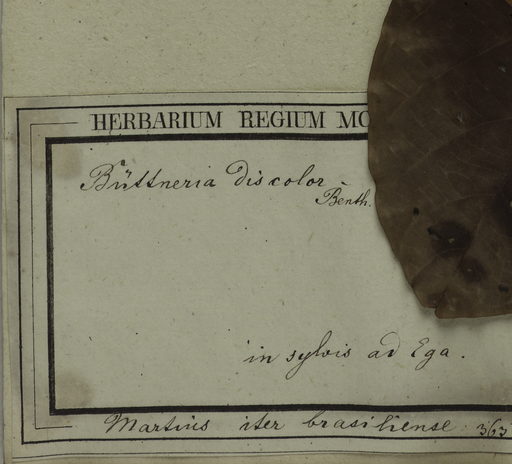 HERBARIUM REGIUM MO
Büttneria discolor
Benth.
in sylvis ad Ega.
Martius iter brasiliense 363